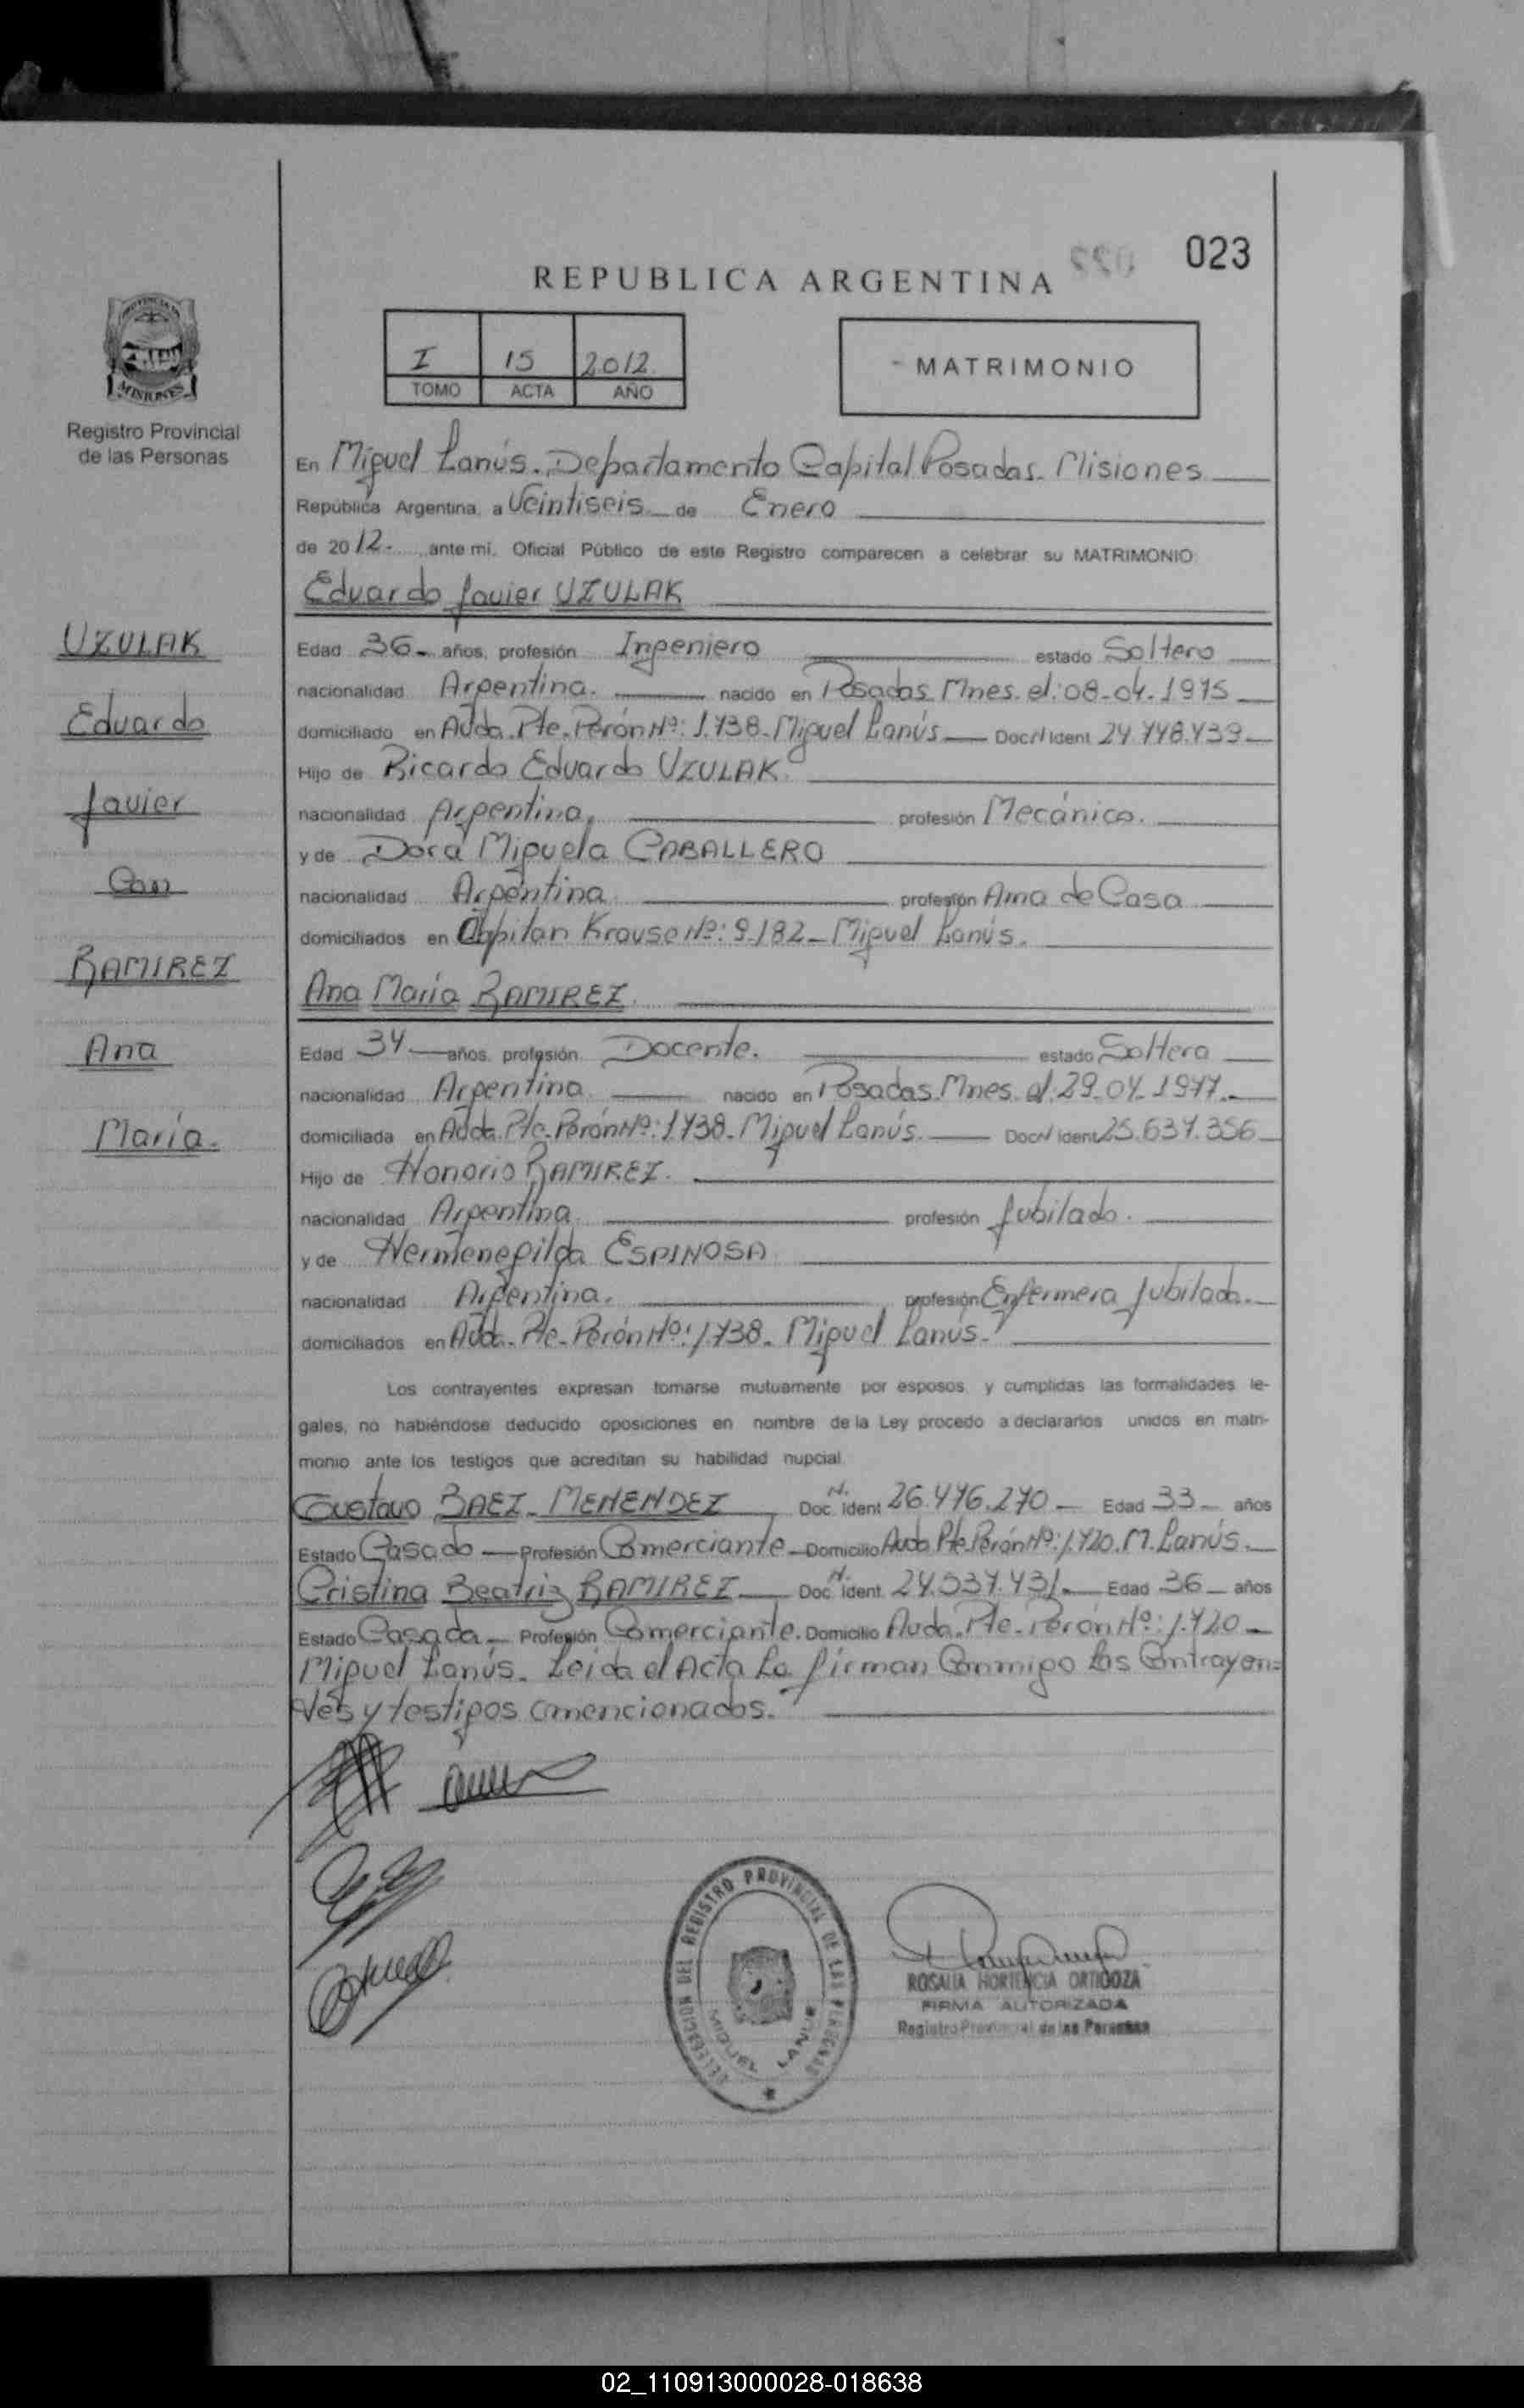 023
REPUBLICA ARGENTINA
I 15 2012
TOMO ACTA AÑO
MATRIMONIO
PROVINCIA DE
MISIONES
Registro Provincial
de las Personas
En Miguel Lanús. Departamento Capital Posadas. Misiones
República Argentina, a Veintiseis de Enero
de 2012. ante mí, Oficial Público de este Registro comparecen a celebrar su MATRIMONIO:
Eduardo Javier UZULAK
UZULAK
Eduardo
Javier
Con
RAMIREZ
Ana
María.
Edad 36 años, profesión Ingeniero estado Soltero
nacionalidad Argentina. nacido en Posadas Mnes. el: 08-04-1975
domiciliado en Avda. Pte. Perón Nº: 1.738. Miguel Lanús Doc. N Ident 24.448.439
Hijo de Ricardo Eduardo UZULAK.
nacionalidad Argentina. profesión Mecánico.
y de Dora Miguela CABALLERO
nacionalidad Argentina profesión Ama de Casa
domiciliados en Capitan Krause Nº: 9.182 Miguel Lanús.
Ana María RAMIREZ.
Edad 34 años, profesión Docente. estado Soltera
nacionalidad Argentina nacido en Posadas. Mnes. el: 29-04-1977.
domiciliada en Avda. Pte. Perón Nº: 1.738. Miguel Lanús. Doc N Ident 25.637.356
Hijo de Honorio RAMIREZ.
nacionalidad Argentina profesión Jubilado.
y de Hermenegilda ESPINOSA
nacionalidad Argentina. profesión Enfermera Jubilada.
domiciliados en Avda. Pte. Perón Nº: 1.738. Miguel Lanús.
Los contrayentes expresan tomarse mutuamente por esposos, y cumplidas las formalidades le-
gales, no habiéndose deducido oposiciones en nombre de la Ley procedo a declararlos unidos en matri-
monio ante los testigos que acreditan su habilidad nupcial.
Gustavo BAEZ MENENDEZ Doc. N. Ident 26.476.270 Edad 33 años
Estado Casado Profesión Comerciante Domicilio Avda Pte. Perón Nº: 1.720. M. Lanús.
Cristina Beatriz RAMIREZ Doc. N. Ident. 24.537.431 Edad 36 años
Estado Casada Profesión Comerciante. Domicilio Avda. Pte. Perón Nº: 1.720
Miguel Lanús. Leida el Acta La firman Conmigo Los Contrayen=
tes y testigos mencionados.
DELEGACION DEL REGISTRO PROVINCIAL DE LAS PERSONAS
MIGUEL LANUS
ROSALIA HORTENCIA ORTIGOZA
FIRMA AUTORIZADA
Registro Provincial de las Personas
02_110913000028-018638